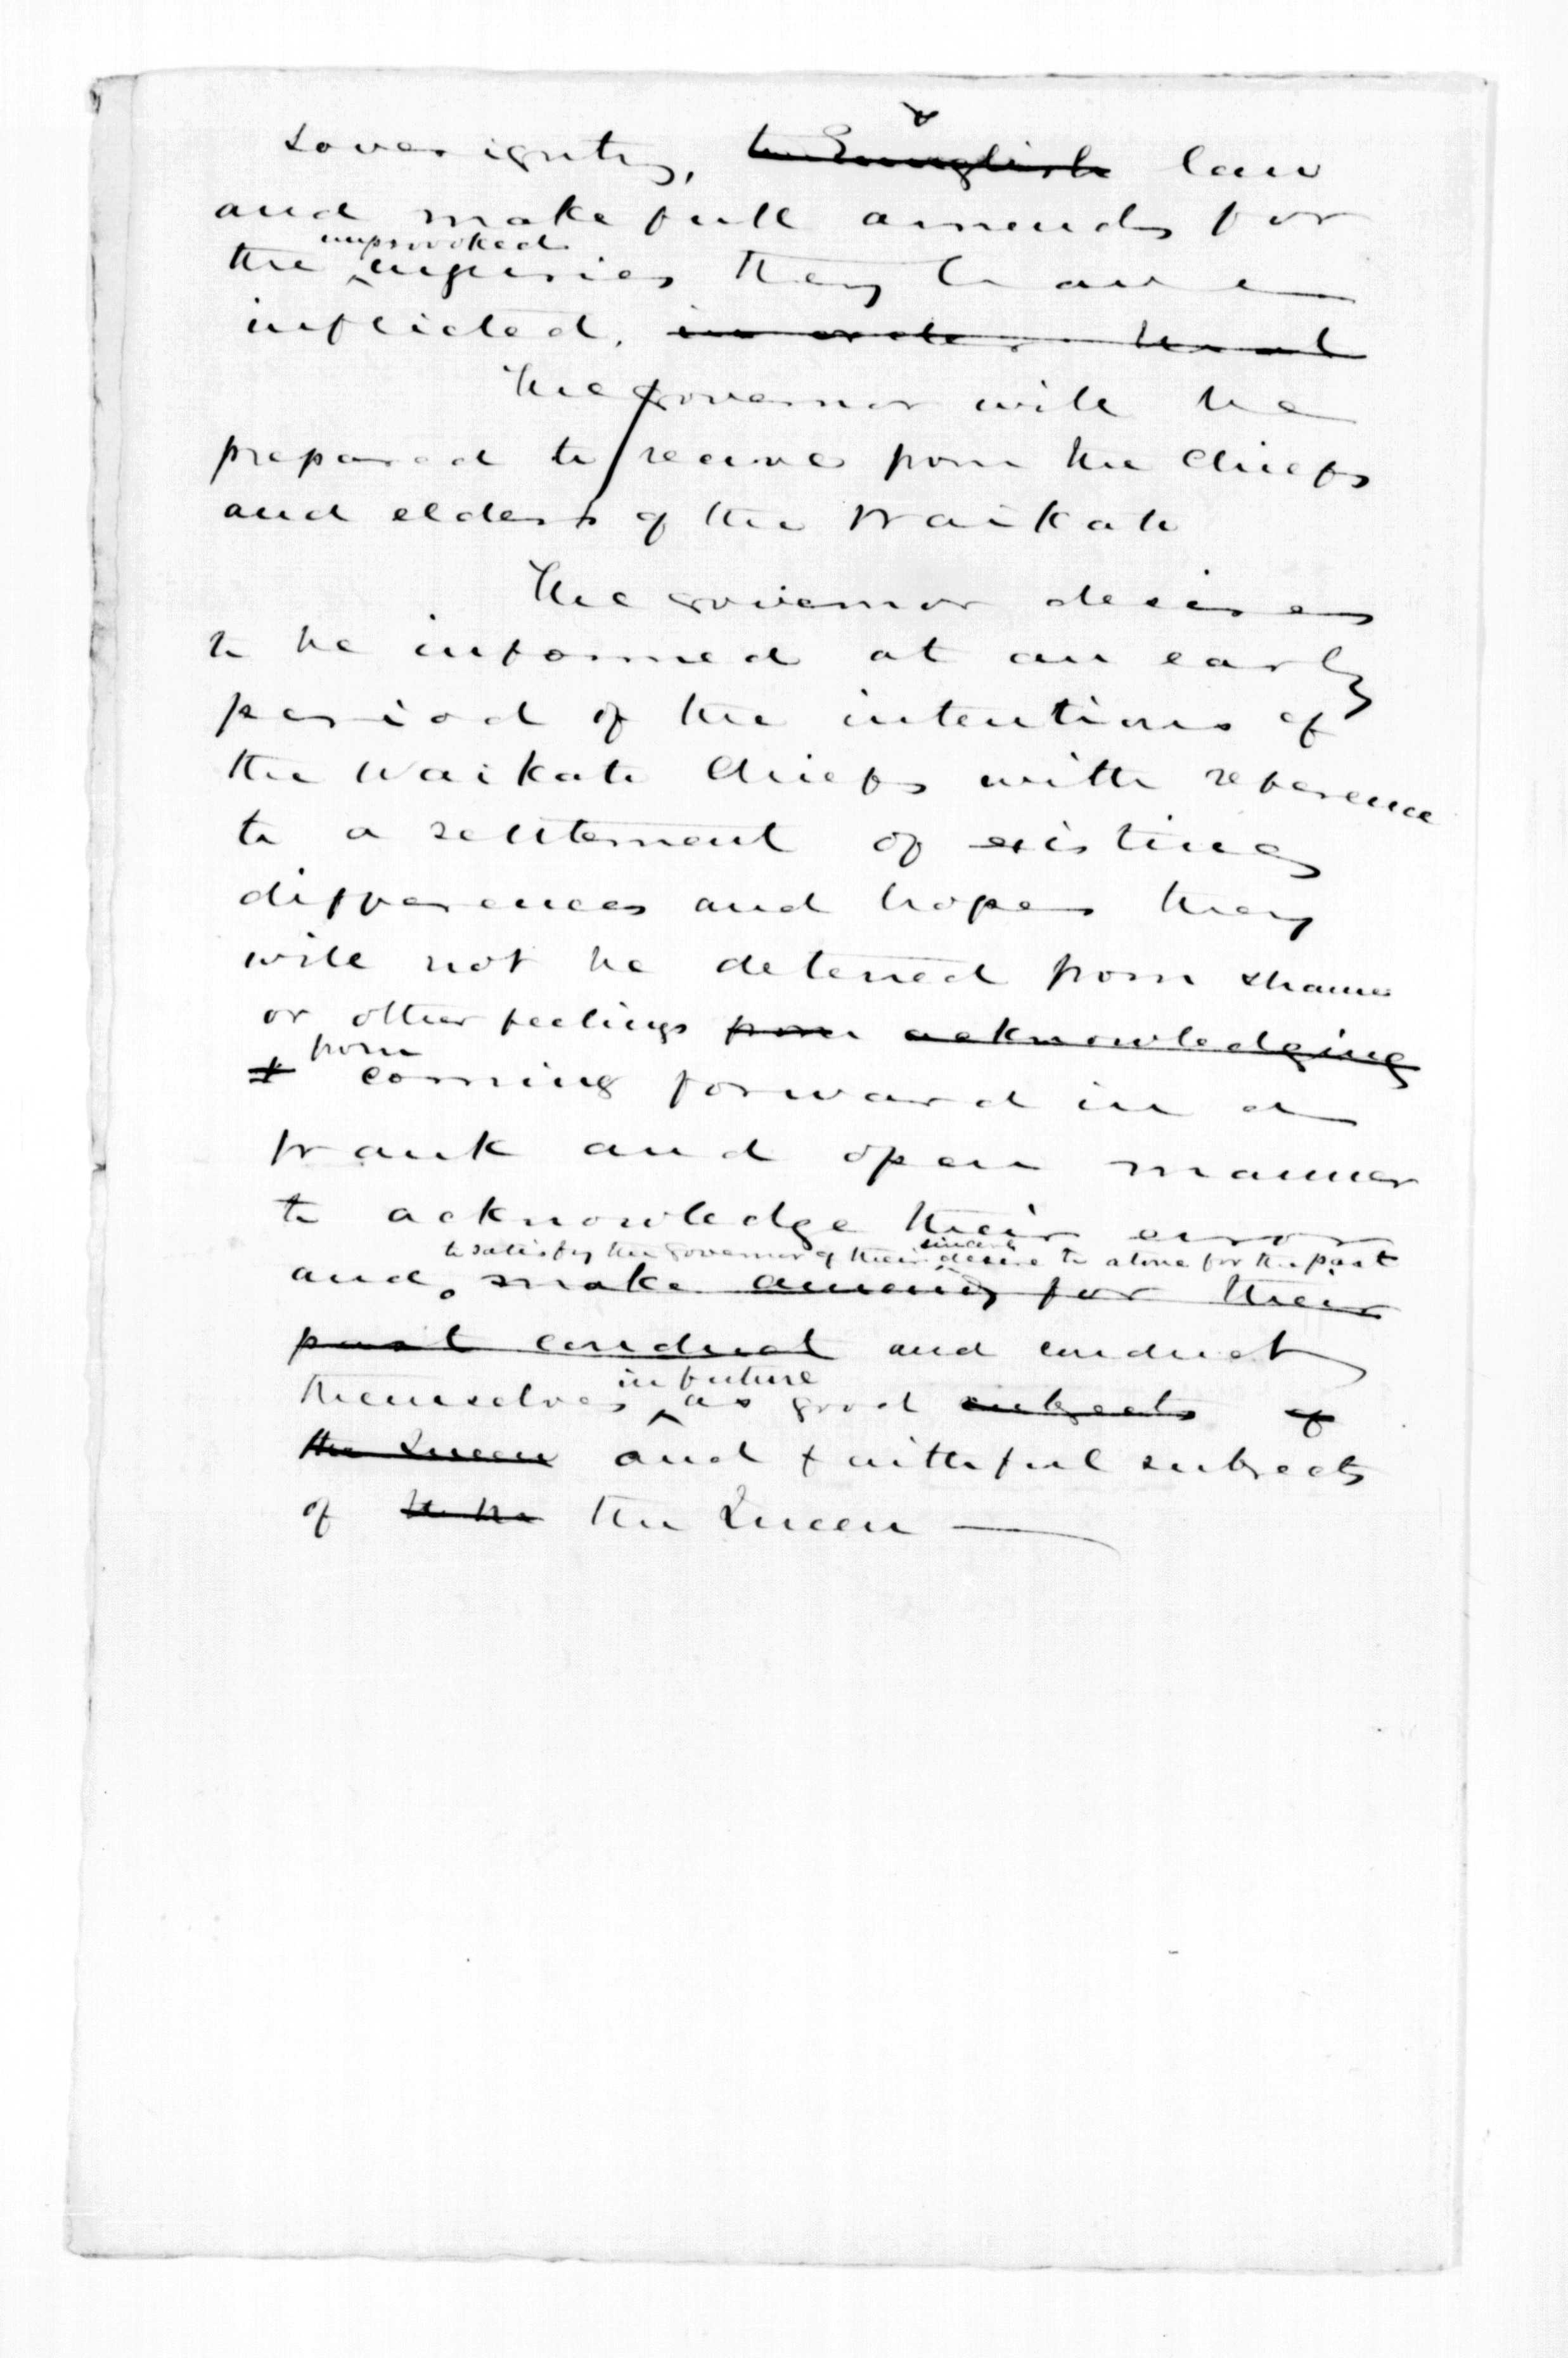 &
soverignty, to English law
and make full amends for
unprovoked
the injuries they have
inflicted. in order that
The Governor will be
prepared to receive from the Chiefs
and elders of the Waikato
The Governor desires
to be informed at an early
period of the intentions of
the Waikato Chiefs with reference
to a settlement of existing
differences and hopes they
will not be deterred from shame
or other feelings from acknowledging
from
coming forward in a
frank and open manner
to acknowledge their error
sincere
to satisfy the Governor of their desire to atone for the past
and make amends for their
past conduct and conduct
in future
themselves as good subjects of
the Queen and faithful subjects
of the Queen